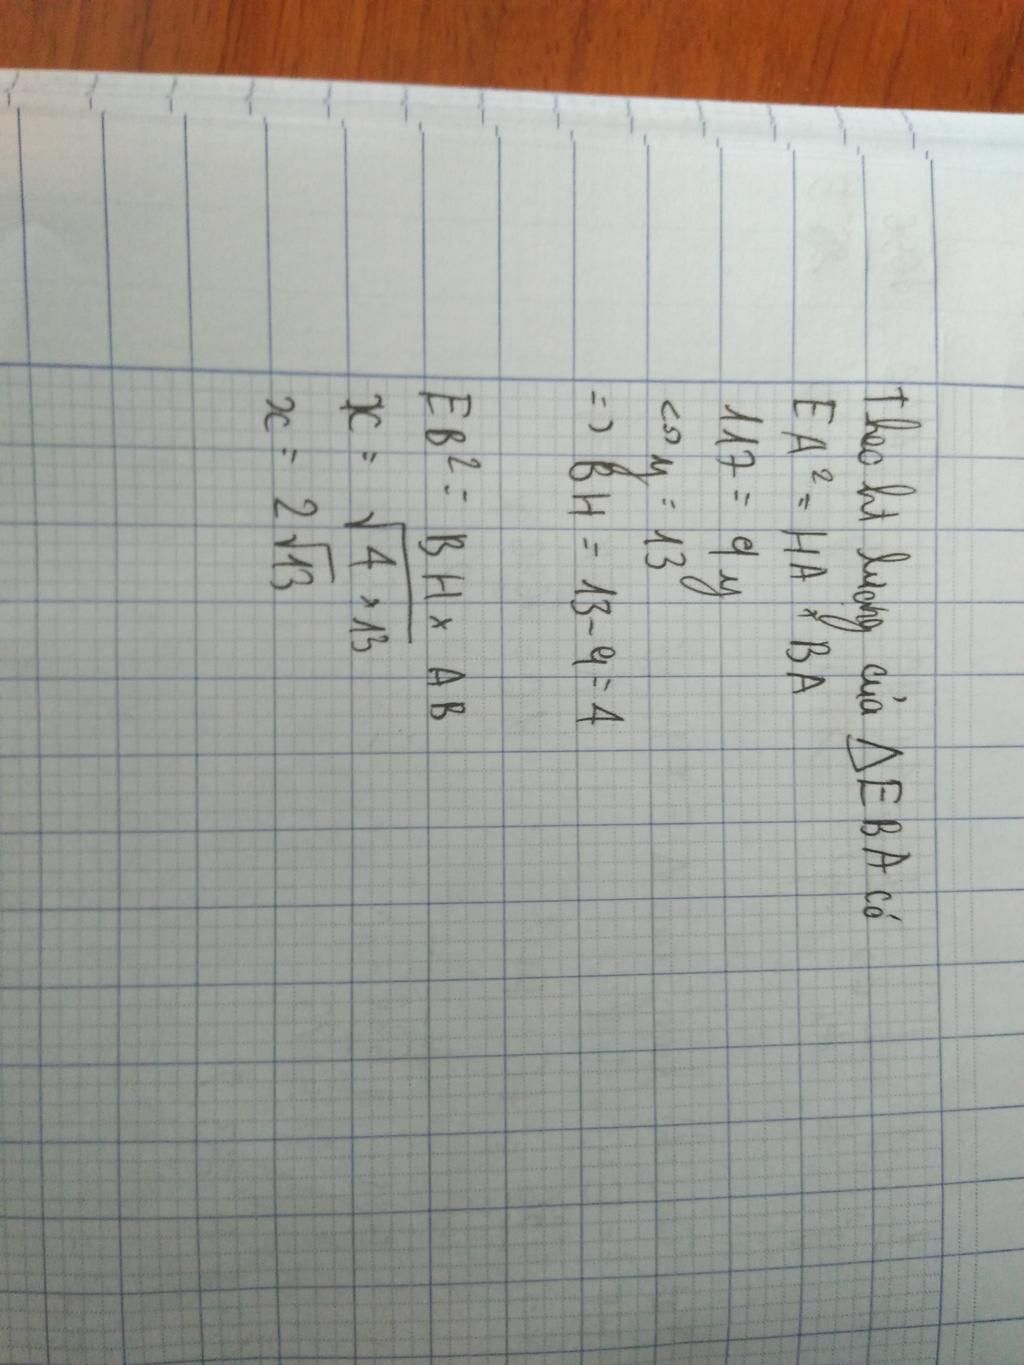 Theo ht lượng của △EBA có
EA² = HA × BA
117 = 9y
<=> y = 13
=> BH = 13 - 9 = 4
EB² = BH × AB
x = √4 × 13
x = 2√13